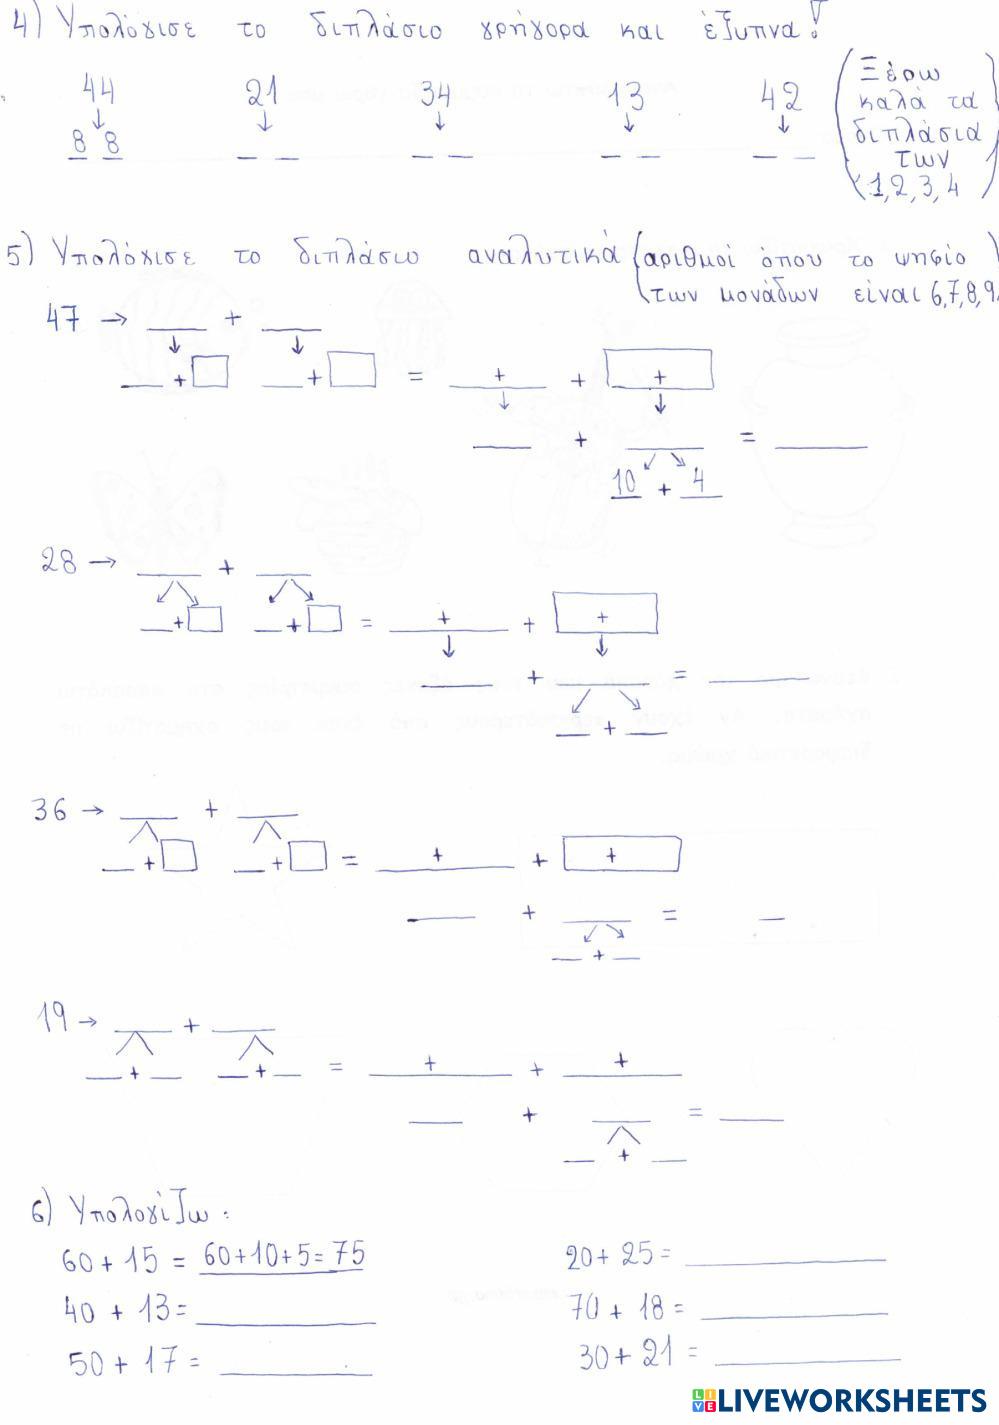 4) Υπολόγισε το διπλάσιο γρήγορα και έξυπνα!
44 21 34 13 42
8 8
(Ξέρω
καλά τα
διπλάσια
των
1, 2, 3, 4)
5) Υπολόγισε το διπλάσιο αναλυτικά (αριθμοί όπου το ψηφίο
των μονάδων είναι 6,7,8,9)
47 → ___ + ___
___ + □ ___ + □ = ___+___ + ___+___
___ + ___ = ___
10 + 4
28 → ___ + ___
___ + □ ___ + □ = ___+___ + ___+___
+ ___ = ___
___ + ___
36 → ___ + ___
___ + □ ___ + □ = ___+___ + ___+___
___ + ___ = ___
___ + ___
19 → ___ + ___
___ + ___ ___ + ___ = ___+___ + ___+___
___ + ___ = ___
___ + ___
6) Υπολογίζω:
60 + 15 = 60+10+5=75 20+ 25= ___
40 + 13= ___ 70 + 18 = ___
50 + 17 = ___ 30+ 21 = ___
LIVEWORKSHEETS